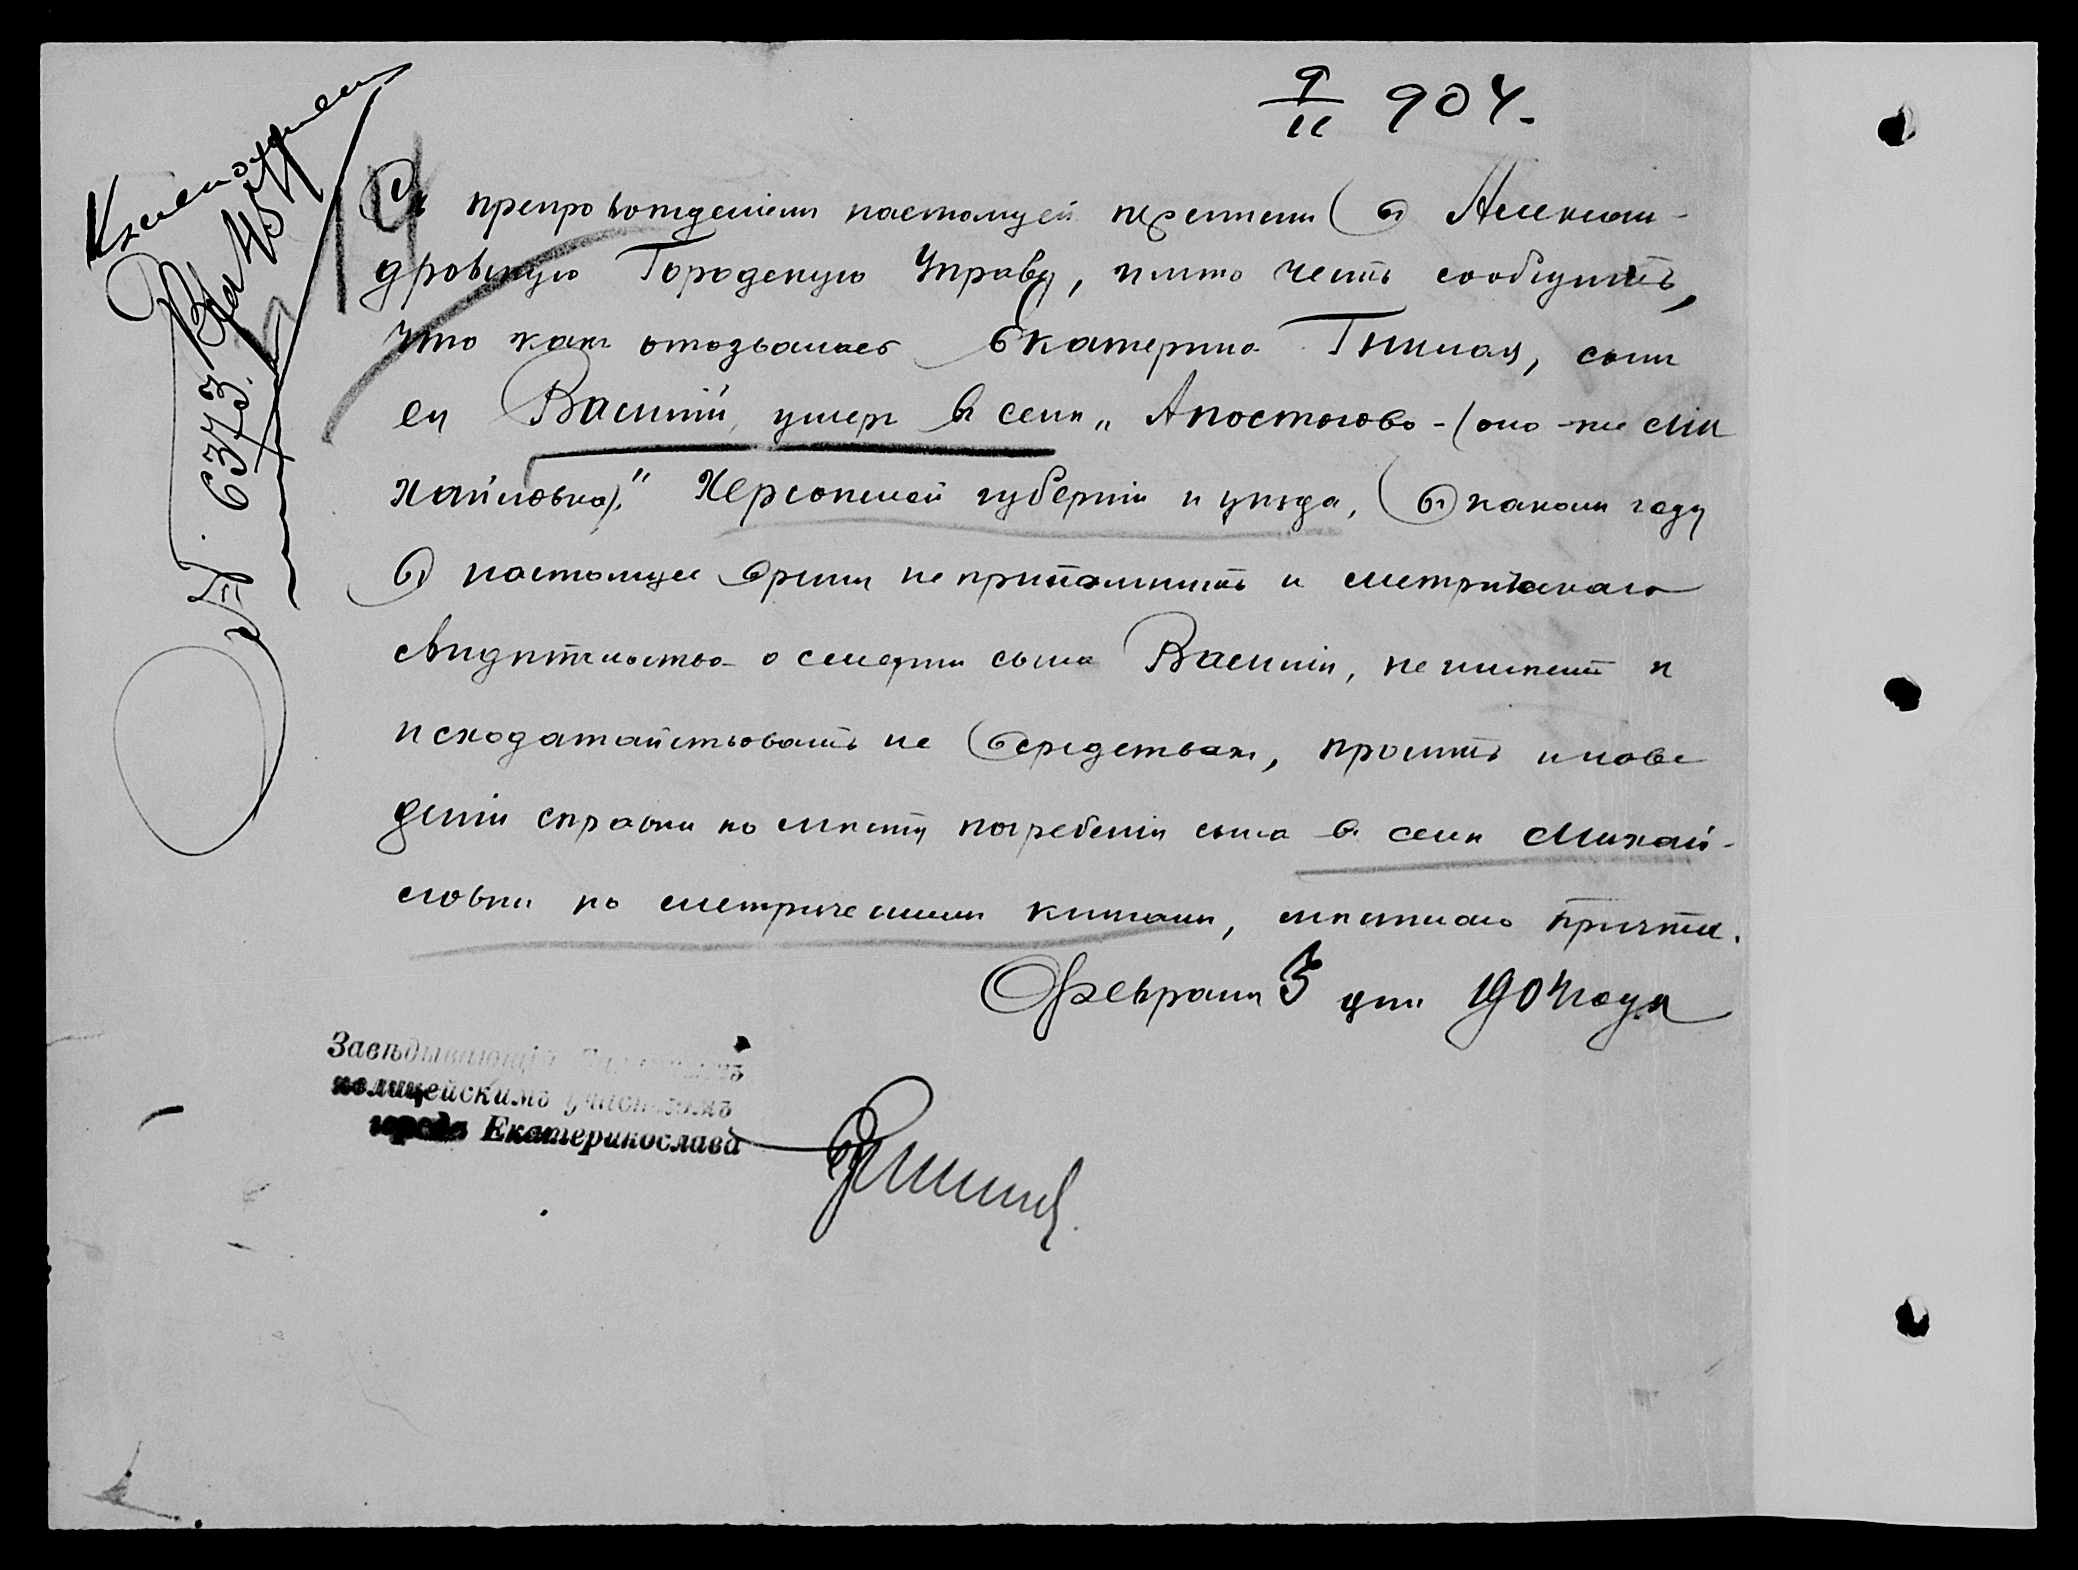 9/II 904.
№ 6373
Съ препровожденіемъ настоящей переписки въ Александ-
дровскую Городскую Управу, имѣю честь сообщить,
что какъ отозвалась Екатерина, сынъ
ея Василій, умеръ въ селѣ „Апостолово-(оно-же Ми
хайловка)." Херсонской губерніи и уѣзда, въ какомъ году
въ настоящее время не припомнитъ и метрическаго
свидѣтельства о смерти сына Василія, не имѣетъ и
исходатайствовать не въ средствахъ, проситъ о наве
деніи справки по мѣсту погребенія сына въ селѣ Михай-
ловки по метрическимъ книгамъ, мѣстнаго причта.
Февраля 5 дня 1904 года
Завѣдывающій
полицейскимъ участкомъ
города Екатеринослава